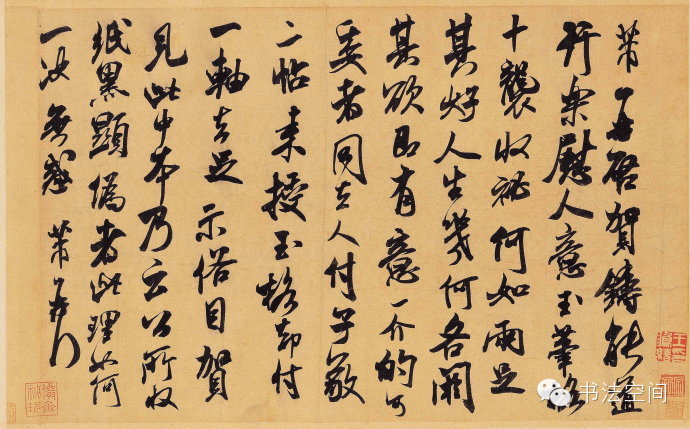 芾再啓賀鑄能道
行樂慰人意玉筆格
十襲收秘何如兩足
其好人生幾何各閼
其欲即有意一介的可
委者同去人付子敬
二帖來授玉格却付
一軸去足示俗目賀
見此中本乃云公所收
紙黑顯偽者此理如何
一決無惑芾再行
书法空间